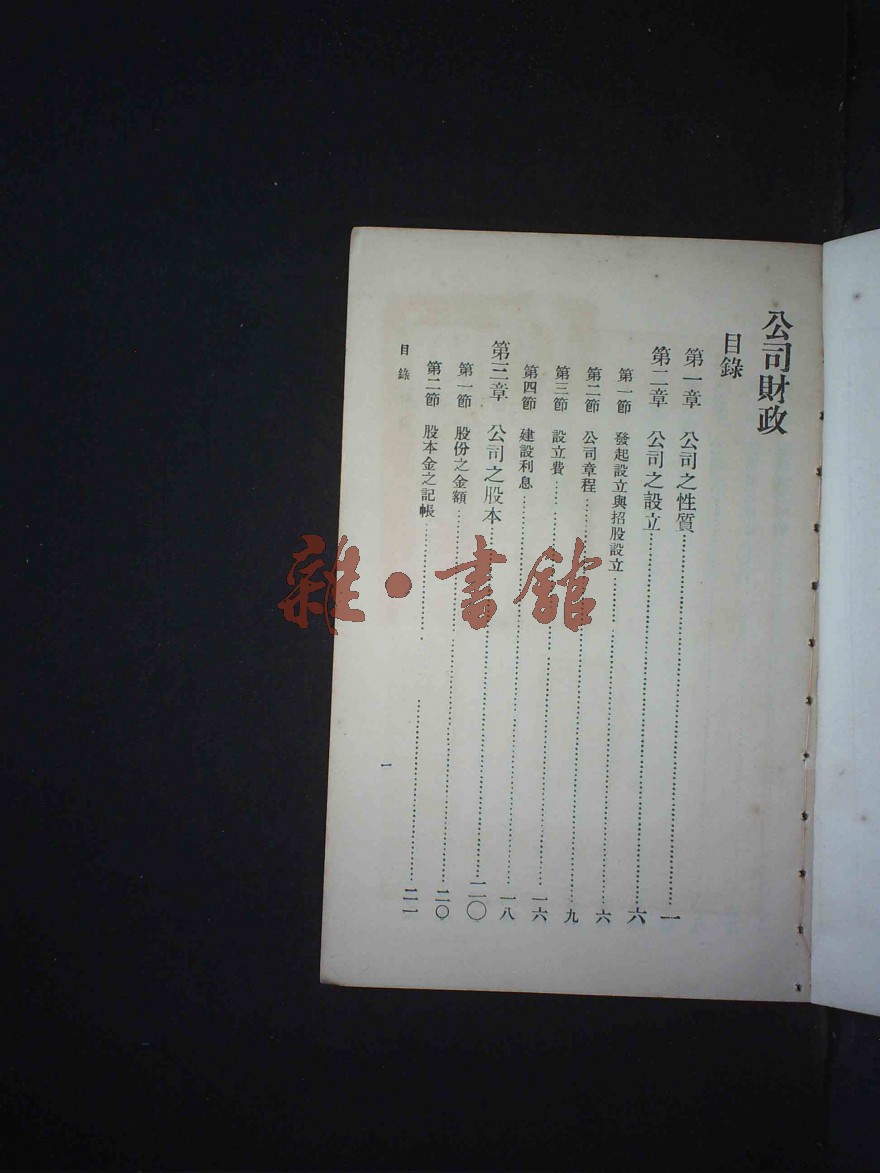 公司財政
目錄
第一章 公司之性質……一
第二章 公司之設立……六
第一節 發起設立與招股設立……六
第二節 公司章程……九
第三節 設立費……一六
第四節 建設利息……一八
第三章 公司之股本……二〇
第一節 股份之金額……二〇
第二節 股本金之記帳……二一
目錄
一
雜·書館